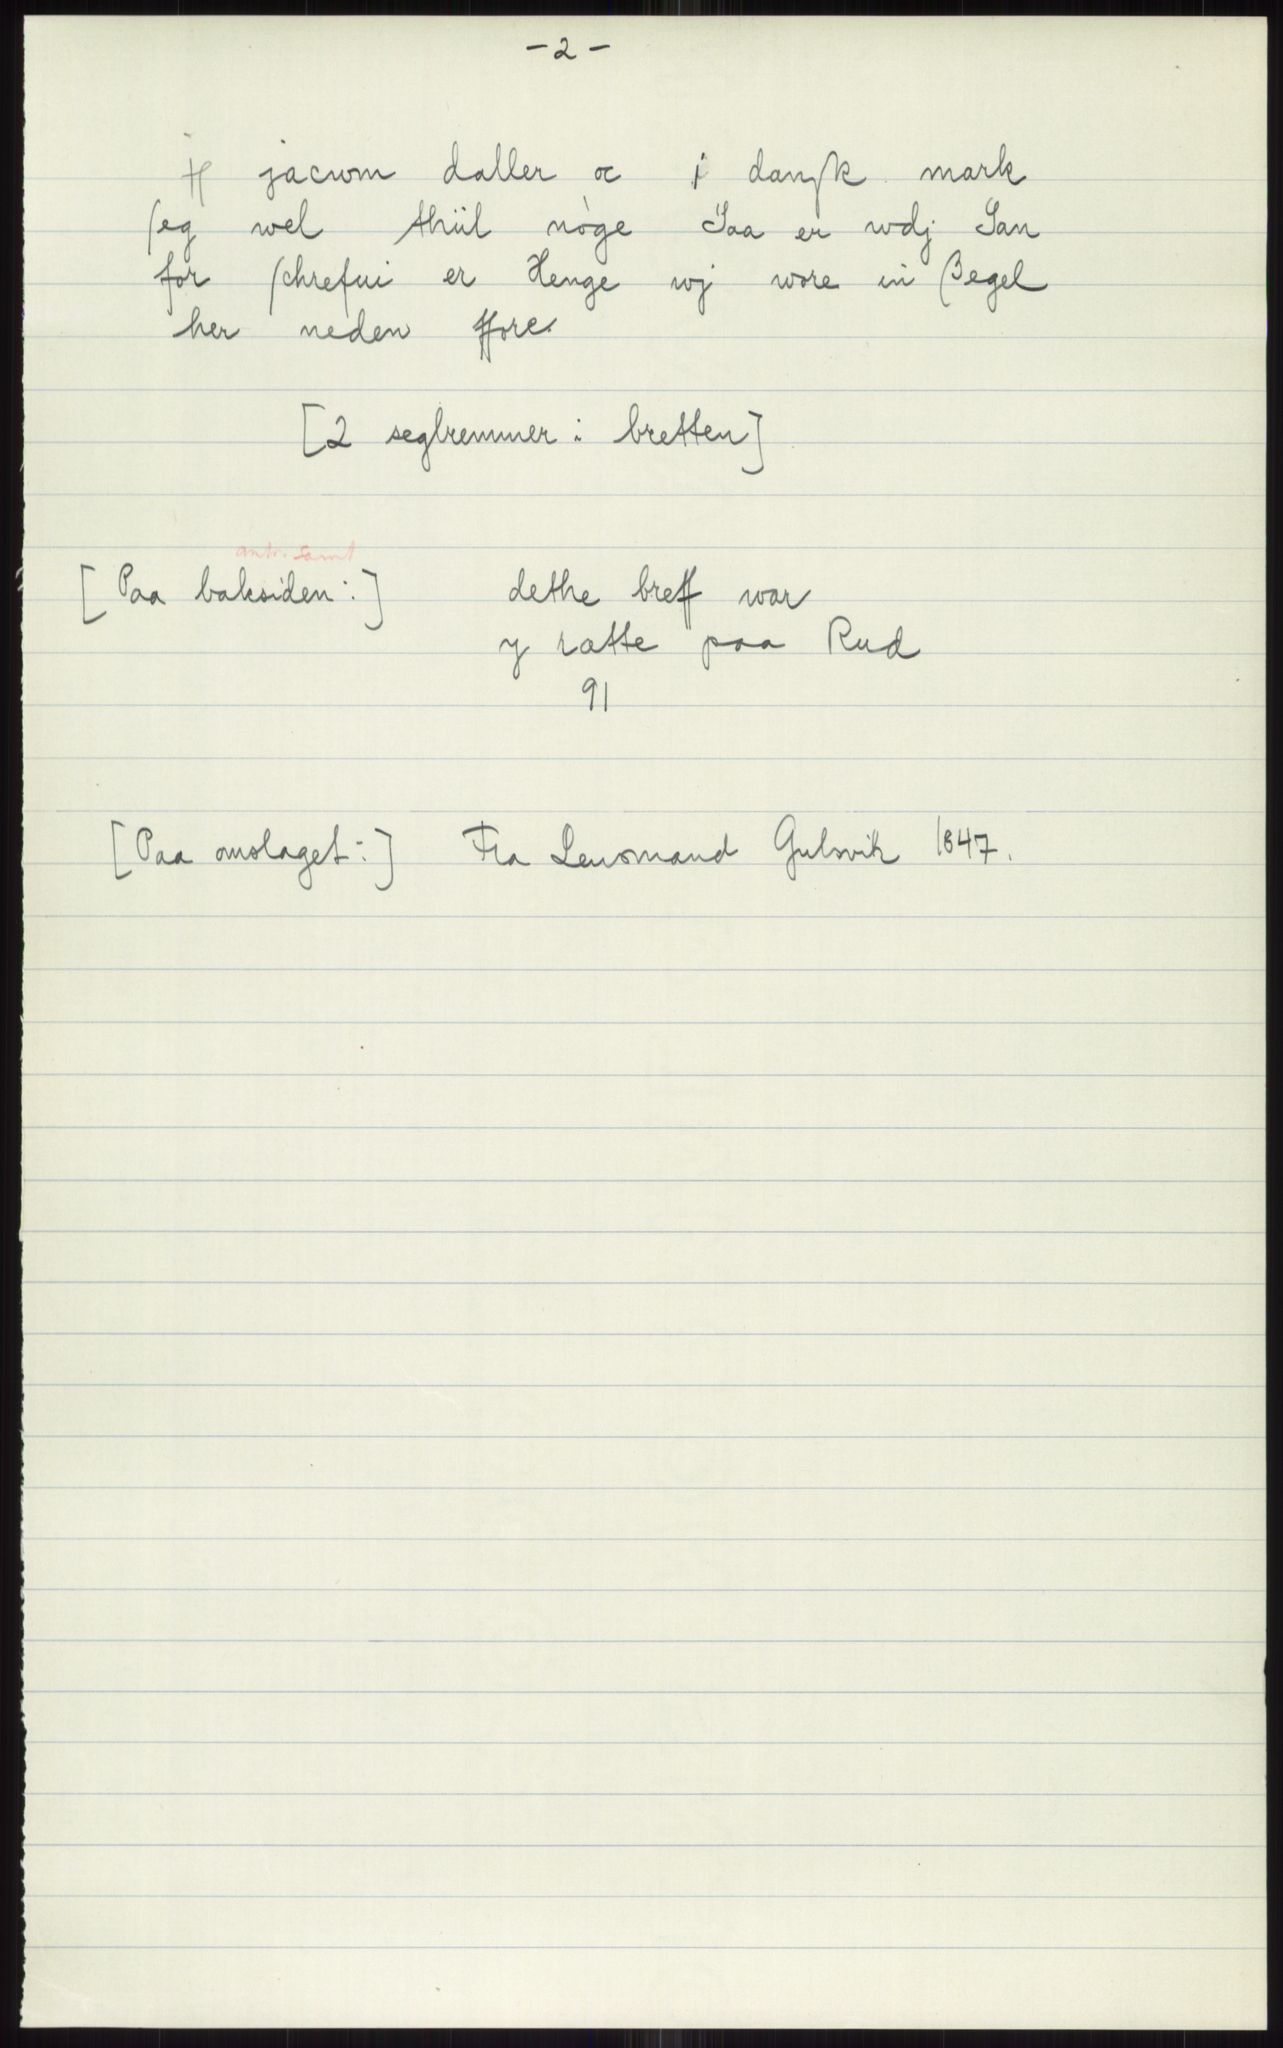 - 2 -
jacwm daller oc j danſk mark
ſeg wel thiil nøge Saa er wdj San
for ſchrefui er Henge wj wore in ſegel
her neden ffore.
[2 seglremmer i bretten]
samt
[Paa baksiden:] dethe breff war
y ratte paa Rud
91
[Paa omslaget:] Fra Lensmand Gulsvik 1847.